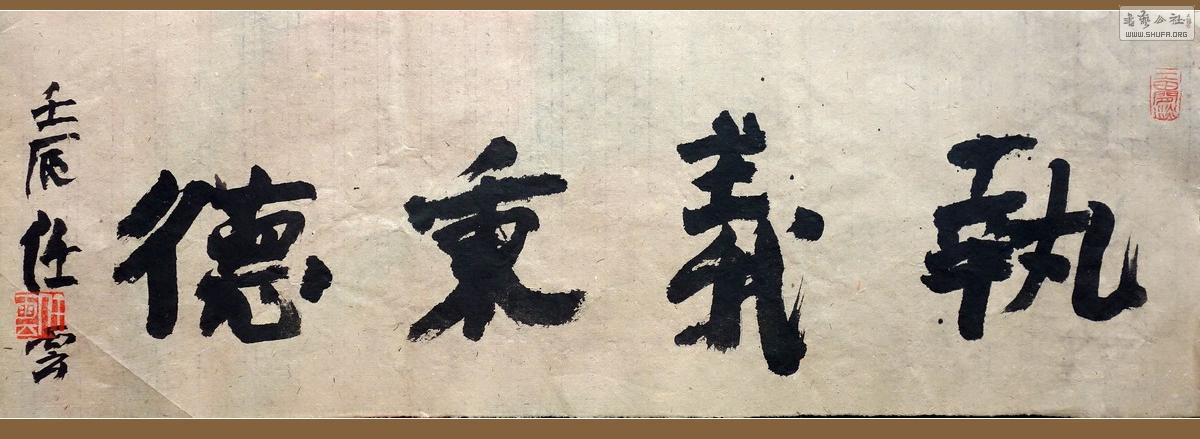 執義秉德
壬辰任雲
任雲
書藝公社
WWW.SHUFA.ORG